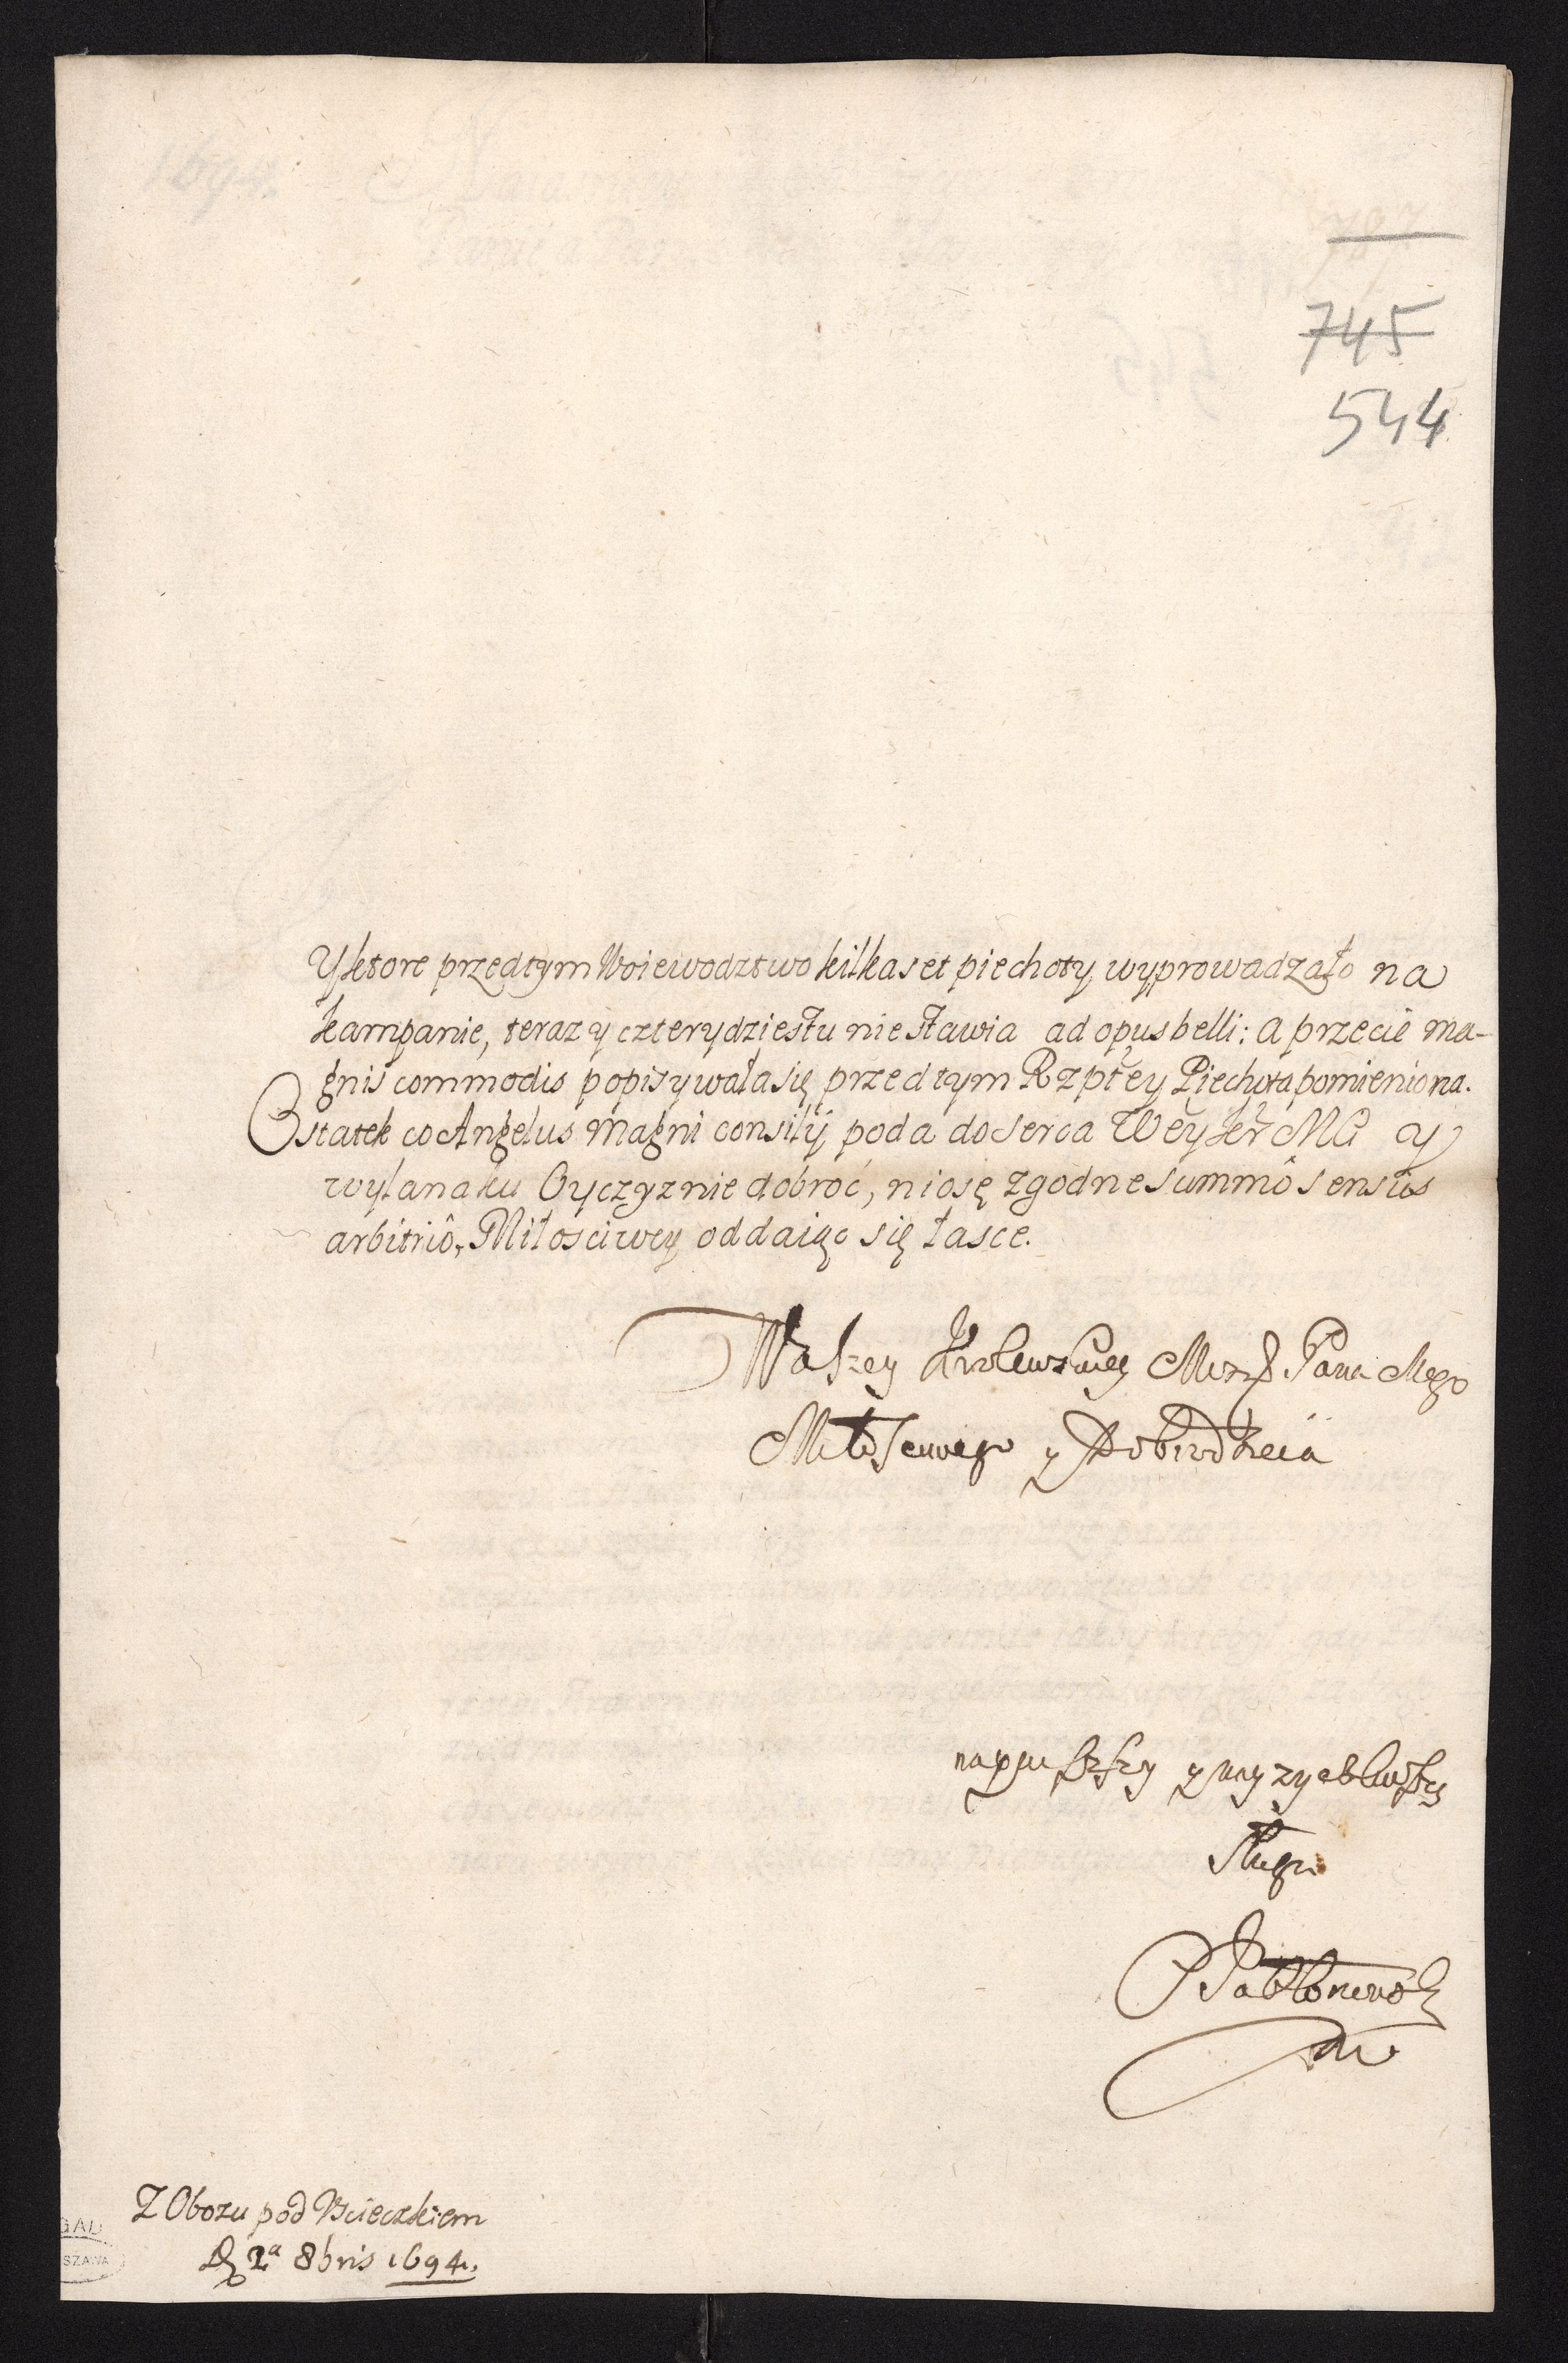 745
544
Y ktore przedtym Woiewodztwo kilkaset piechoty wyprowadzało na
kampanie, teraz y czterydziestu nie stawia ad opus belli: a przecie ma-
gnis commodis popisywała się przed tym Rzpłey Piechota pomieniona.
Ostatek co Angelus Magni consilÿ poda do serca Weÿ Kr Mci y
wylana ku Oyczyznie dobroć, niosę zgodne summô sensus
arbitriô, Miłosciwey oddaiąc się łasce.
Waszey Krolewskiey Mosci Pana Mego
Miłosciwego y Dobrodzieia
naÿ y nayzyczliwszy
Sługa
SJabłonowski
Z Obozu pod Uscieczkiem
D 2ª 8bris 1694.
GAD
SZAWA